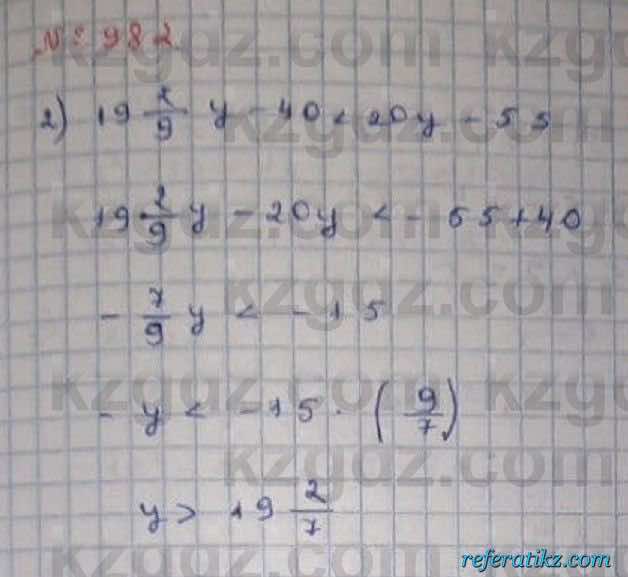 № 982
2) 19 2/9 y - 40 < 20y - 55
19 2/9 y - 20y < - 55 + 40
- 7/9 y < - 15
- y < - 15 · (9/7)
y > 19 2/7
kzgdz.com
referatikz.com